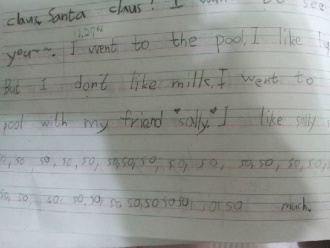 claus, Santa claus! I want to see
you~~. I went to the pool, I like
But I don't like milk, I went to
pool with my friend "sally," I like sally
so, so so, so, so, so, so, so, so, so, so, so, so, so
so, so, so, so, so, so, so, so, so, so, so, so much.